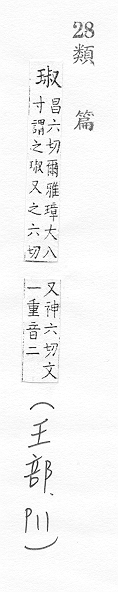 28
類篇
琡 昌六切爾雅璋大八
寸謂之琡又之六切
又神六切文
一重音二
(王部、P11)